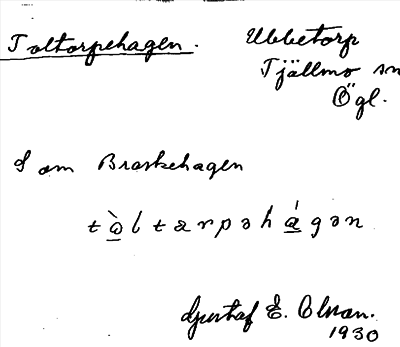 Toltorpehagen. Ubbetorp
Tjällmo sn
Ögl.
S om Braskehagen
tòltarpəhágən
Gustaf E. Olsson.
1930